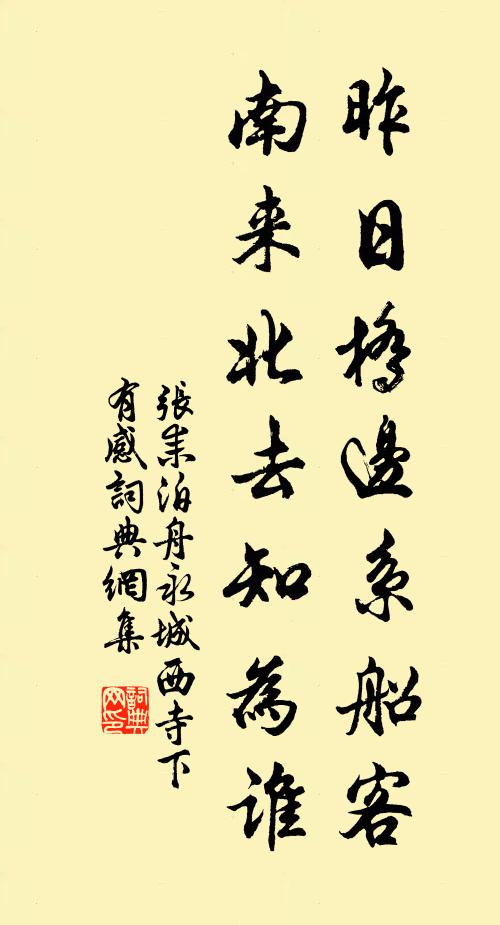 昨日橋邊系船客
南来北去知為誰
張耒泊舟永城西寺下
有感詞典網集
詞典
网印